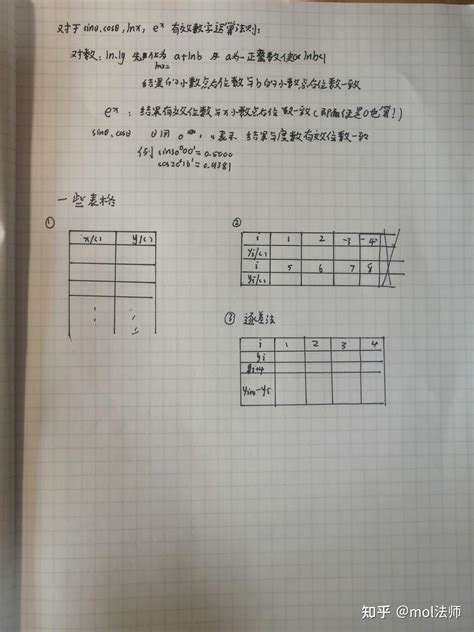 对于sinθ, cosθ, lnx, eˣ 有效数字运算法则:
对数: ln, lg 先化为 a+lnb 且 a为一正整数
结果的小数点后位数与b的小数点后位数一致
eˣ: 结果有效位数与x小数点后位数一致(即使是0也算!)
sinθ, cosθ θ用 ° ′ ″ 表示 结果与度数有效位数一致
例 sin30°00′=0.5000
= 0.9381
一些表格
①
x/( ) y/( )
②
i 1 2 3 4
yi/( )
i 5 6 7 8
yi/( )
③ 逐差法
i 1 2 3 4
yi
yi+4
知乎 @mol法师